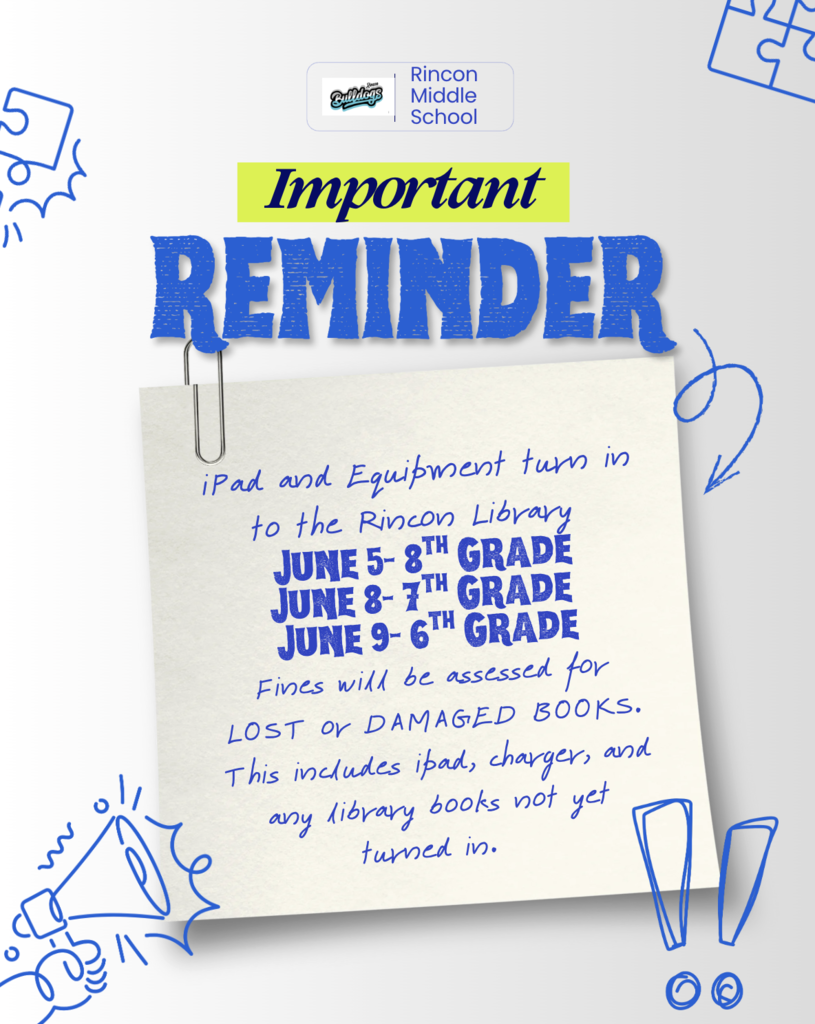 Bulldogs
Rincon
Middle
School
Important
REMINDER
iPad and Equipment turn in
to the Rincon Library
JUNE 5- 8TH GRADE
JUNE 8- 7TH GRADE
JUNE 9- 6TH GRADE
Fines will be assessed for
LOST or DAMAGED BOOKS.
This includes ipad, charger, and
any library books not yet
turned in.